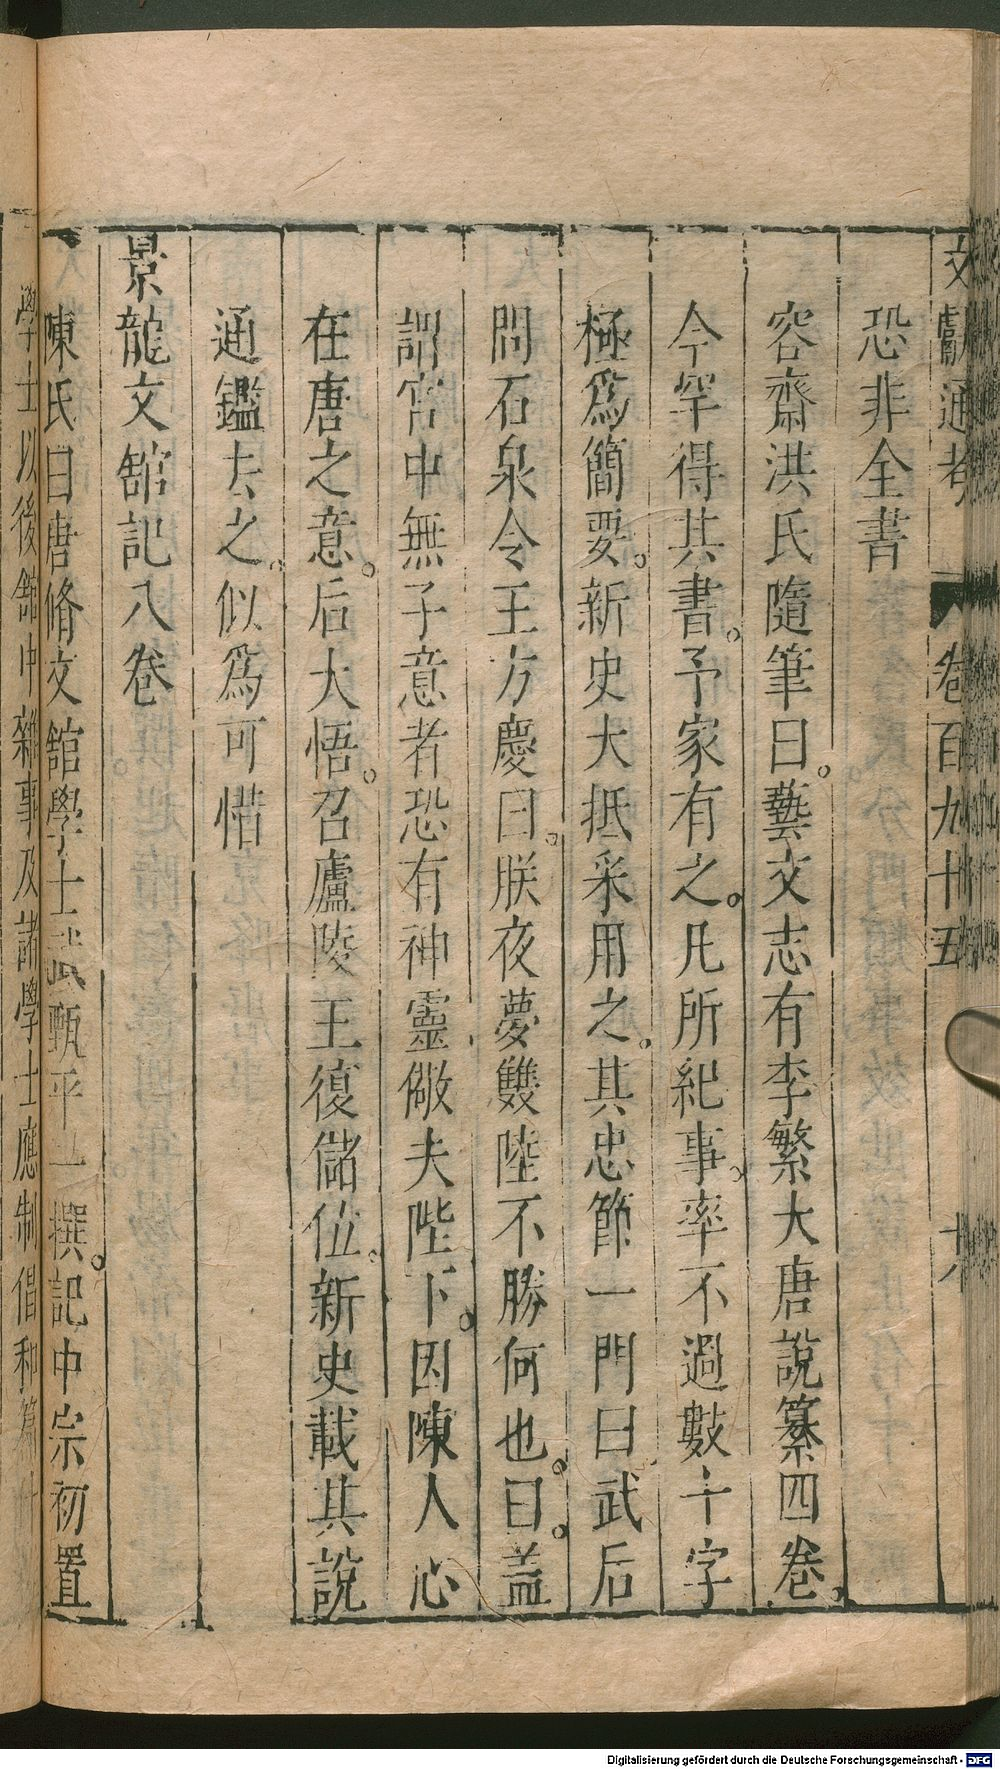 文獻通考 卷百九十五 十八
恐非全書
容齋洪氏隨筆曰藝文志有李繁大唐說纂四卷
今罕得其書予家有之凡所紀事率不過數十字
極爲簡要新史大抵采用之其忠節一門曰武后
問石泉令王方慶曰朕夜夢雙陸不勝何也曰蓋
謂宮中無子意者恐有神靈儆夫陛下因陳人心
在唐之意后大悟召廬陵王復儲位新史載其說
通鑑去之似爲可惜
景龍文館記八卷
陳氏曰唐脩文館學士武甄平一撰記中宗初置
學士以後館中雜事及諸學士應制倡和篇什
Digitalisierung gefördert durch die Deutsche Forschungsgemeinschaft - DFG